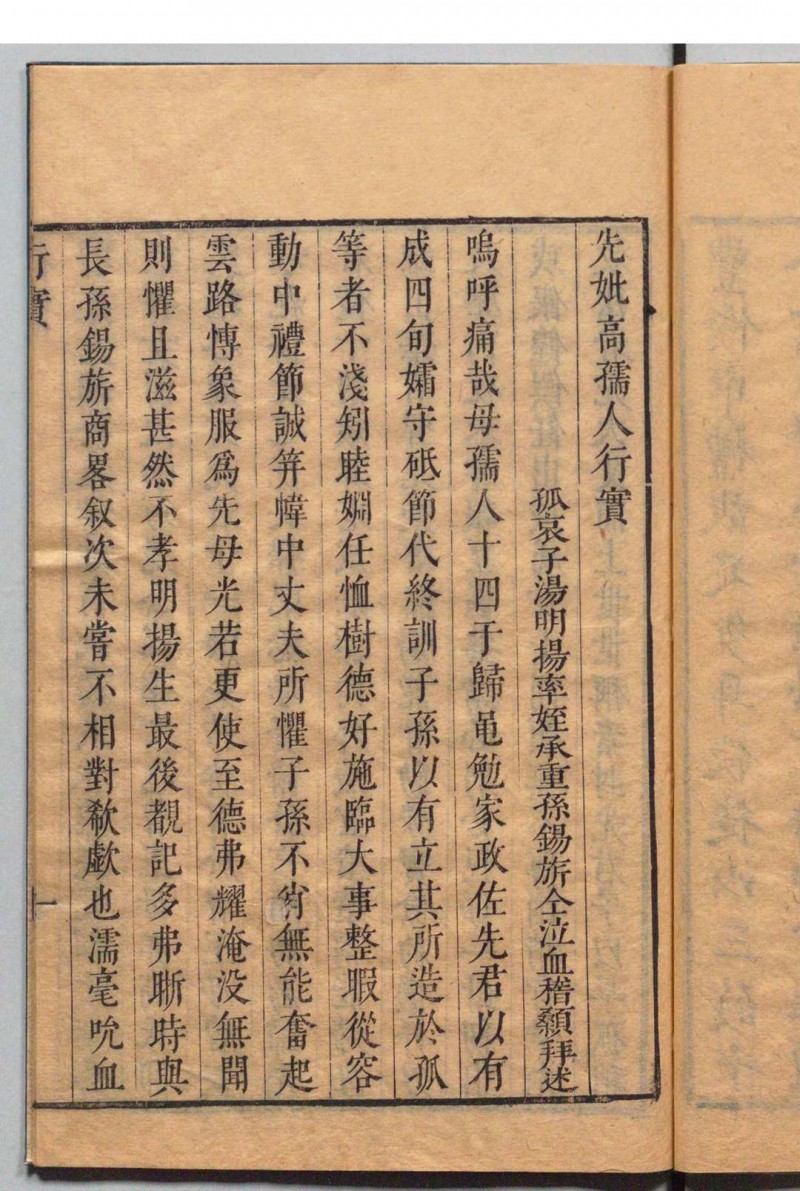 先妣高孺人行實
孤哀子湯明揚率姪承重孫錫旂仝泣血稽顙拜述
嗚呼痛哉母孺人十四于歸黾勉家政佐先君以有
成四旬孀守砥節代終訓子孫以有立其所造於孤
等者不淺矧睦婣任恤樹德好施臨大事整暇從容
動中禮節誠筓幃中丈夫所懼子孫不肖無能奮起
雲路愽象服爲先母光若更使至德弗耀淹没無聞
則懼且滋甚然不孝明揚生最後覩記多弗晣時與
長孫錫旂商畧叙次未嘗不相對欷歔也濡毫吮血
行實
一